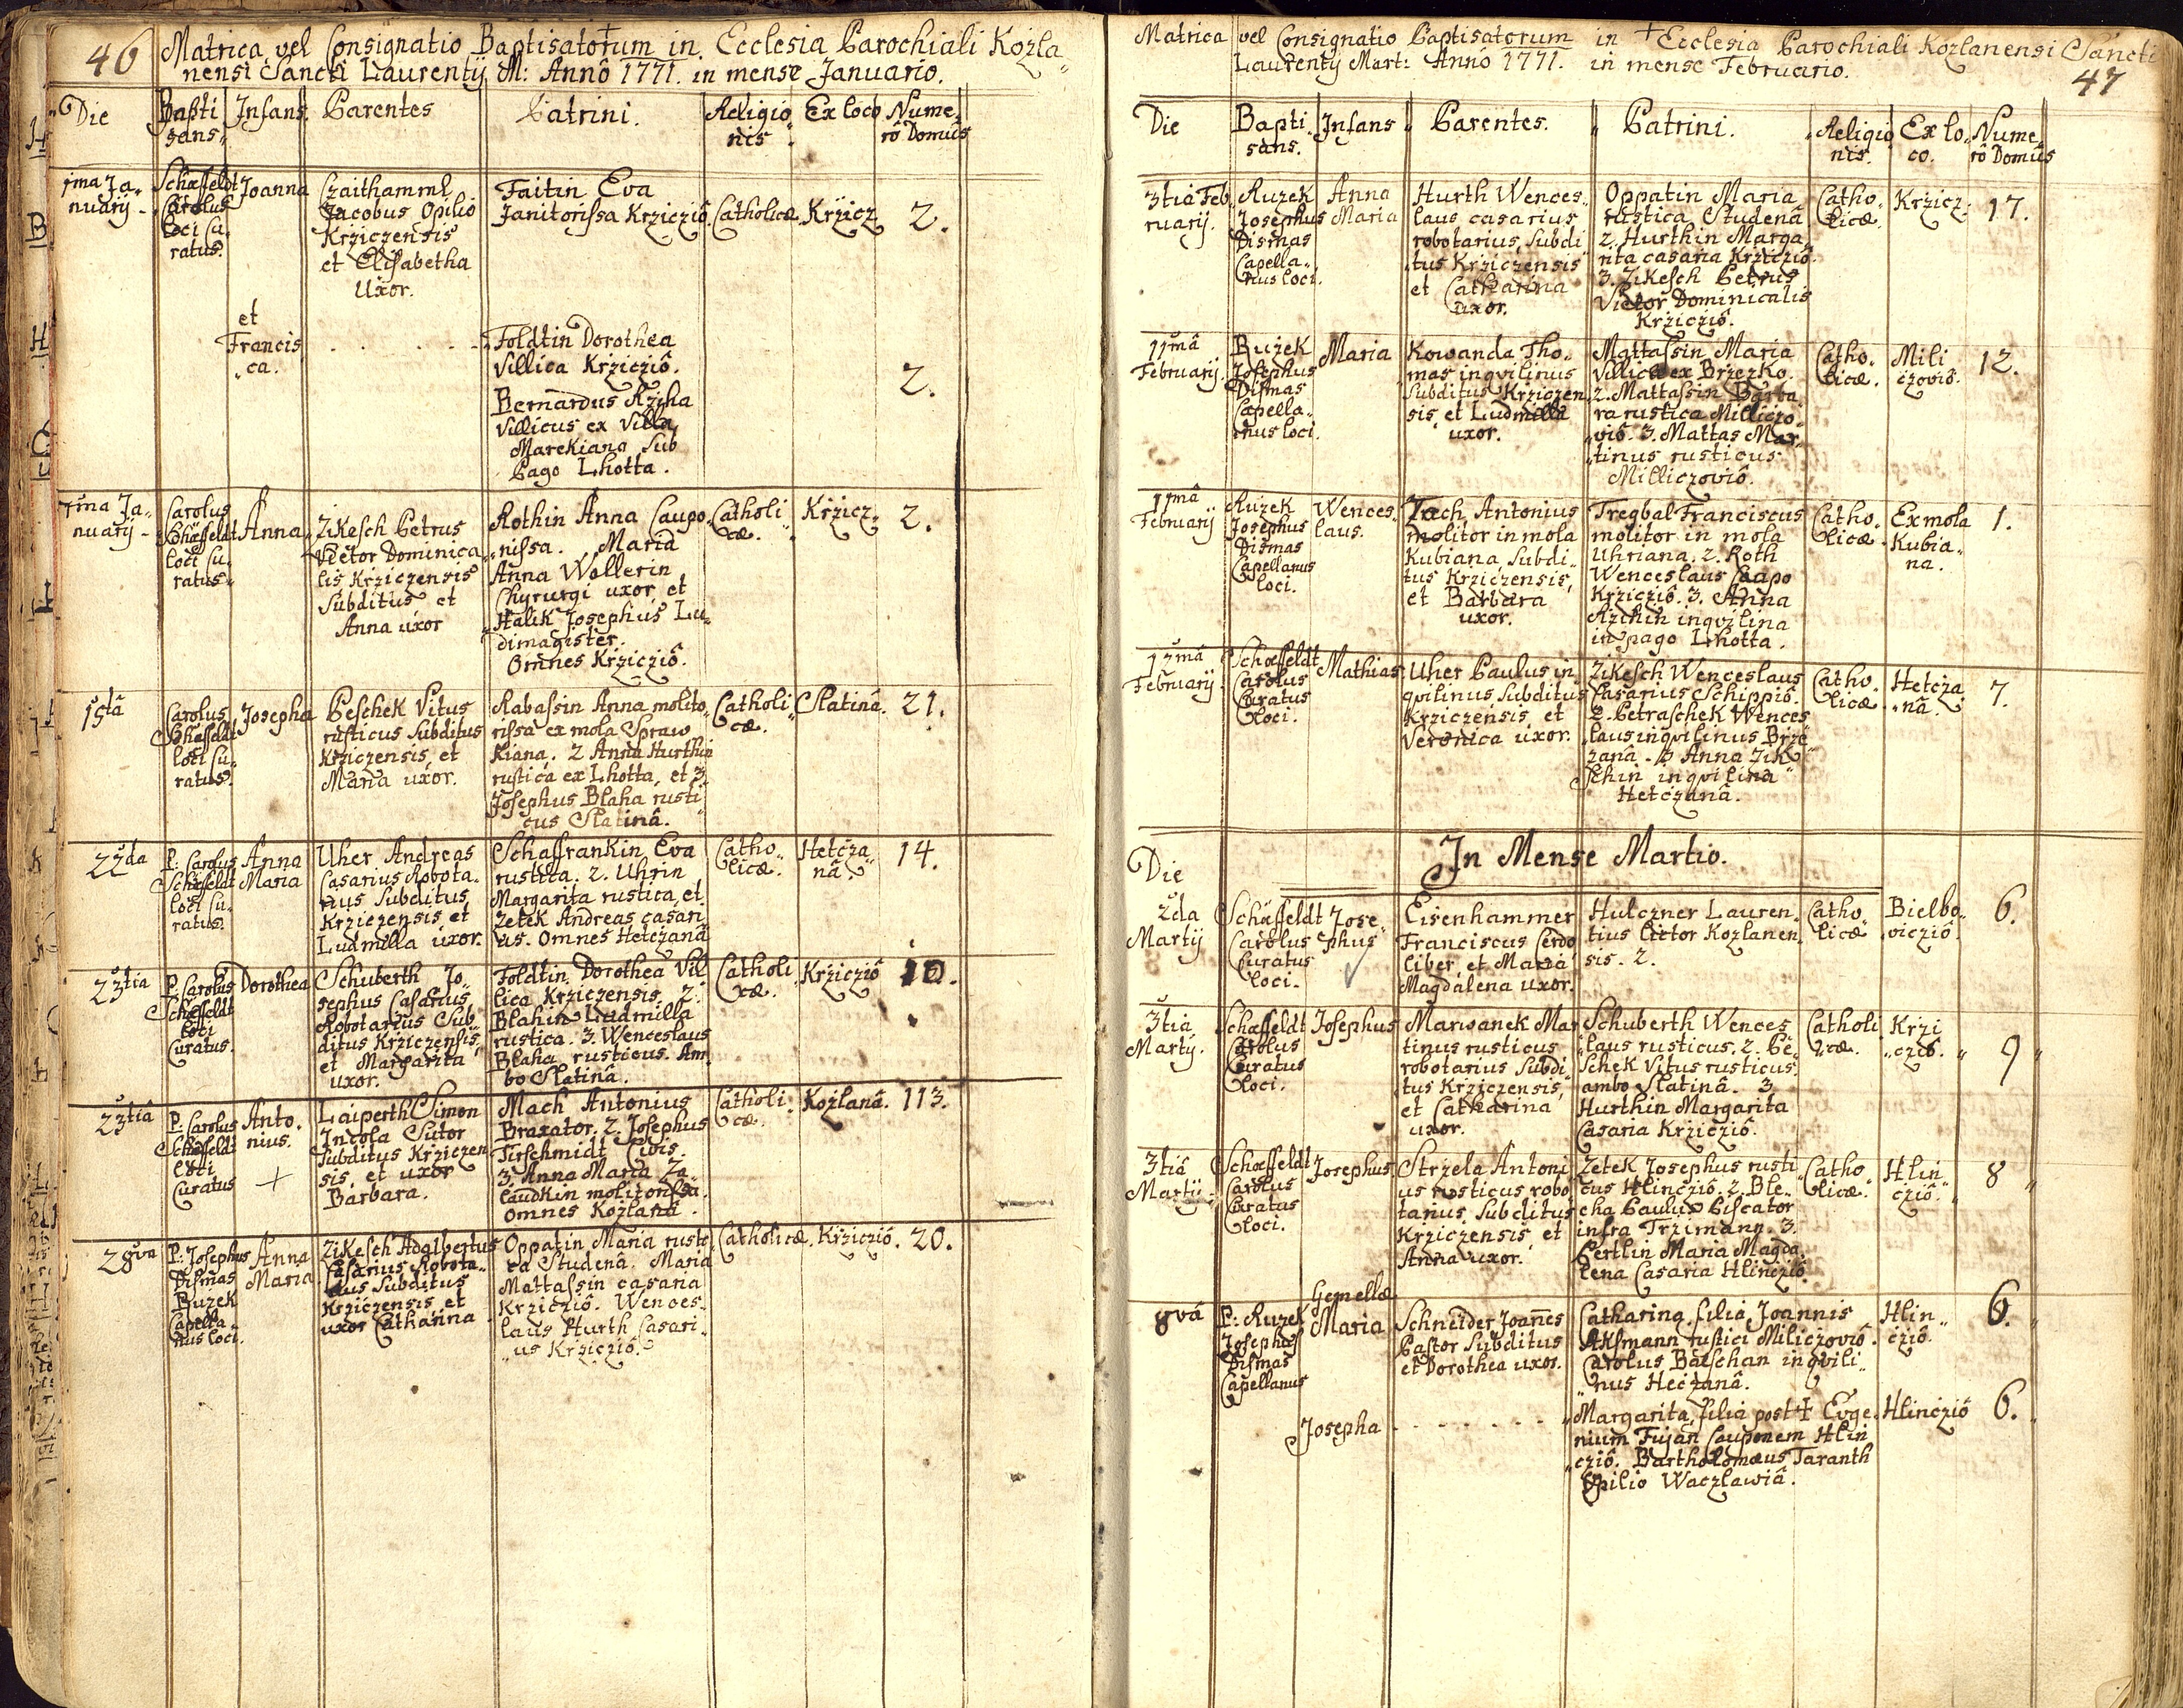 46
Matrica vel Consignatio Baptisatorum in Ecclesia Parochiali Kozla„
nensi Sancti Laurentij M: Annô 1771. in mense Januario.
Die Bapti Infans. Parentes Patrini. Religio„ Ex loco Nume„
sans„ nis. rô Domûs
1ma Ja„
nuarij
Schæffeldt
Carolus
Loci Cu„
ratus.
Joanna
Czaithamml
Jacobus Opilio
Krziczensis
et Elisabetha
Uxor.
Faitin Eva
Janitorissa Krzicziô.
Catholicæ
Krzicz
2.
et
Francis
„ca.
Foldtin Dorothea
Villica Krzicziô.
Bernardus Rziha
Villicus ex Villa
Marekiana Sub
Pago Lhotta.
2.
7ma Ja„
nuarij
Carolus
Schæffeldt
loci Cu„
ratus„
Anna
Zikesch Petrus
Victor Dominica„
lis Krziczensis
Subditus et
Anna uxor
Rothin Anna Caupo„
nissa. Maria
Anna Wollerin
Chyrurgi uxor, et
Halik Josephus Lu„
dimagister.
Omnes Krzicziô.
Catholi„
cæ.
Krzicz„
2.
15tâ
Carolus
Schæffeldt
loci Cu„
ratus.
Josepha
Peschek Vitus
rusticus Subditus
Krziczensis, et
Maria uxor.
Rabassin Anna molito„
rissa ex mola Spraw
Kiana. 2 Anna Hurthin
rustica ex Lhotta, et 3.
Josephus Blaha rusti
cus Slatinâ.
Catholi„
cæ.
Slatinâ.
21.
22da
P: Carolus
Schæffeldt
loci Cu„
ratus.
Anna
Maria
Uher Andreas
Casarius Robota„
rius Subditus
Krziczensis et
Ludmilla uxor.
Schaffrankin Eva
rustica. 2. Uhrin
Margarita rustica, et
Zetek Andreas casari
us. Omnes Hetczanâ
Catho„
licæ.
Hetcza„
nâ.
14.
23tia
P. Carolus
Schæffeldt
loci
Curatus.
Dorothea
Schuberth Jo„
sephus Casarius
Robotarius Sub„
ditus Krziczensis,
et Margarita
uxor.
Foldtin Dorothea Vil
lica Krziczensis 2.
Blahin Ludmilla
rustica. 3. Wenceslaus
Blaha rusticus. Am„
bo Slatinâ.
Catholi„
cæ.
Krzicziô
10.
23tiâ
P. Carolus
Schæffeldt
loci
Curatus
Anto„
nius.
Laiperth Simon
Incola Sutor
Subditus Krziczen
sis, et uxor
Barbara.
Mach Antonius
Braxator. 2. Josephus
Tirschmidt Civis.
3. Anna Maria Za„
laudkin molitorissa.
omnes Kozlanâ.
Catholi„
cæ.
Kozlanâ.
113.
28va
P: Josephus
Dismas
Ruzek
Capella„
nus loci.
Anna
Maria
Zikesch Adalbertus
Casarius Robota„
rius Subditus
Krziczensis et
uxor Catharina
Oppatin Maria rusti„
ca Studenâ. Maria
Mattassin casaria
Krzicziô. Wences„
laus Hurth Casari„
„us Krzicziô.
Catholicæ
Krzicziô.
20.
47
Matrica vel Consignatio Baptisatorum in Ecclesia Parochiali Kozlanensi Sancti
Laurentij Mart: Annô 1771. in mense Februario.
Die Bapti„ Infans Parentes. Patrini. Religio„ Ex lo„ Nume„
sans. nis. co. rô Domûs
3tia Feb
ruarij.
Ruzek
Josephus
Dismas
Capella„
nus loci.
Anna
Maria
Hurth Wences„
laus casarius
robotarius, Subdi
tus Krziczensis
et Catharina
uxor.
Oppatin Maria
rustica Studenâ
2. Hurthin Marga„
rita casaria Krzicziô.
3. Zikesch Petrus
Victor Dominicalis
Krzicziô.
Catho„
licæ.
Krzicz.
17.
11mâ
Februarij.
Ruzek
Josephus
Dismas
Capella„
nus loci.
Maria
Kowanda Tho„
mas inqvilinus
Subditus Krziczen
sis, et Ludmilla
uxor.
Mattassin Maria
Villica ex Brzezko.
2. Mattassin Barba
ra rustica Milliczo„
„viô. 3. Mattas Mar„
„tinus rusticus
Milliczoviô.
Catho„
licæ.
Mili
czoviô.
12.
11mâ
Februarij
Ruzek
Josephus
Dismas
Capellanus
loci.
Wences„
laus.
Zach Antonius
molitor in mola
Kubiana, Subdi„
tus Krziczensis,
et Barbara
uxor.
Tregbal Franciscus
molitor in mola
Uhriana. 2. Roth
Wenceslaus Caupo
Krzicziô. 3. Anna
Rzihin inqvilina
in pago Lhotta.
Catho„
licæ.
Ex mola
Kubia„
na.
1.
12mâ
Februarij
Schæffeldt
Carolus
Curatus
loci.
Mathias
Uher Paulus in„
qvilinus Subditus
Krziczensis, et
Veronica uxor.
Zikesch Wenceslaus
Casarius Schippiô.
2. Petraschek Wences
laus inqvilinus Brze
zanâ. 3 Anna Zik„
schin inqvilina
Hetczanâ.
Catho„
licæ.
Hetcza
„nâ.
7.
In Mense Martio.
Die
2da
Martij
Schæffeldt
Carolus
Curatus
loci.
Jose„
phus
Eisenhammer
Franciscus Cerdo
liber, et Maria
Magdalena uxor.
Hulczner Lauren„
tius lictor Kozlanen„
sis. 2.
Catho„
licæ
Bielbo„
viczió.
6.
3tia
Martij.
Schæffeldt
Carolus
Curatus
loci.
Josephus
Marwanek Mar
tinus rusticus
robotarius Subdi„
tus Krziczensis,
et Catharina
uxor.
Schuberth Wences
laus rusticus. 2. Pe„
schek Vitus rusticus.
ambo Slatinâ. 3
Hurthin Margarita
Casaria Krzicziô.
Catholi
cæ.
Krzi
„cziô.
9
3tiâ
Martij.
Schæffeldt
Carolus
Curatus
loci.
Josephus
Strzela Antoni
us rusticus robo
tarius Subditus
Krziczensis, et
Anna uxor.
Zetek Josephus rusti
cus Hlincziô. 2. Ble„
cha Paulus Piscator
infra Trzimann. 3.
Pertlin Maria Magda
lena Casaria Hlincziô
Catho
licæ.
Hlin
cziô.
8
8vâ
P: Ruzek
Josephus
Dismas
Capellanus
Gemellæ
Maria
Schneider Joanes
Pastor Subditus
et Dorothea uxor.
Catharina filia Joannis
Aksmann rustici Miliczoviô.
Carolus Batschan inqvili„
„nus Heczanâ.
Hlin„
cziô.
6.
Josepha
Margarita, filia post † Euge„
nium Fujan Cauponem Hlin
„cziô. Bartholomæus Taranth
Opilio Waczlawiâ.
Hlincziô
6.